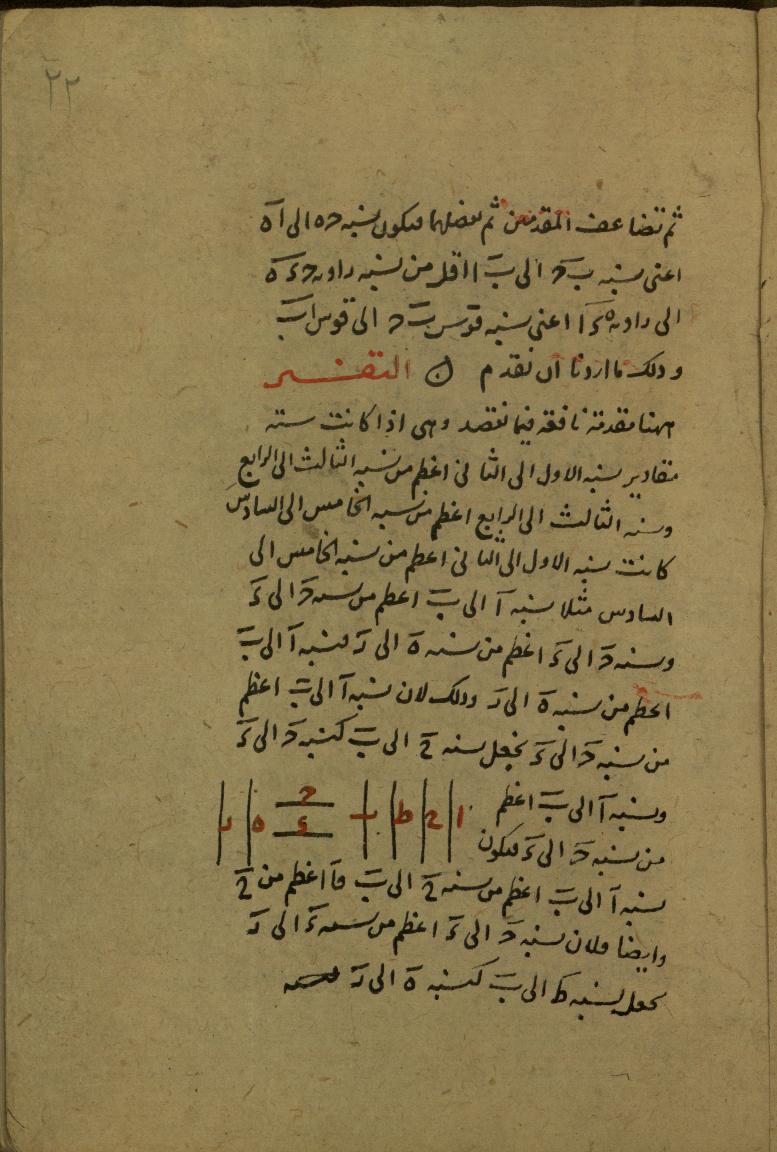 ٢٢
ثم تضاعف المقدمين ثم نفصلهما فيكون نسبه حه الى اه
اعنى نسبه ب ح الى ب ا اقل من نسبه زاويه ح ء ه
الى زاويه ه ء ا اعنى نسبه قوس ب ح الى قوس ا ب
وذلك ما اردنا ان نقدم ن التفسير
ههنا مقدمة نافعة فيما نقصد وهى اذا كانت ستة
مقادير نسبه الاول الى الثانى اعظم من نسبه الثالث الى الرابع
ونسبه الثالث الى الرابع اعظم من نسبه الخامس الى السادس
كانت نسبه الاول الى الثانى اعظم من نسبه الخامس الى
السادس مثلا نسبه ا الى ب اعظم من نسبه ح الى ء
ونسبه ح الى ء اعظم من نسبه ه الى ز فنسبه ا الى ب
اعظم من نسبه ه الى ز وذلك لان نسبه ا الى ب اعظم
من نسبه ح الى ء نجعل نسبه ج الى ب كنسبه ح الى ء
ونسبه ا الى ب اعظم
من نسبه ح الى ء فيكون
ا ج ط ب ح ء ه ز
نسبه ا الى ب اعظم من نسبه ج الى ب فا اعظم من ج
وايضا فلان نسبه ح الى ء اعظم من نسبه ه الى ز
نجعل نسبه ط الى ب كنسبه ه الى ز فنسبه